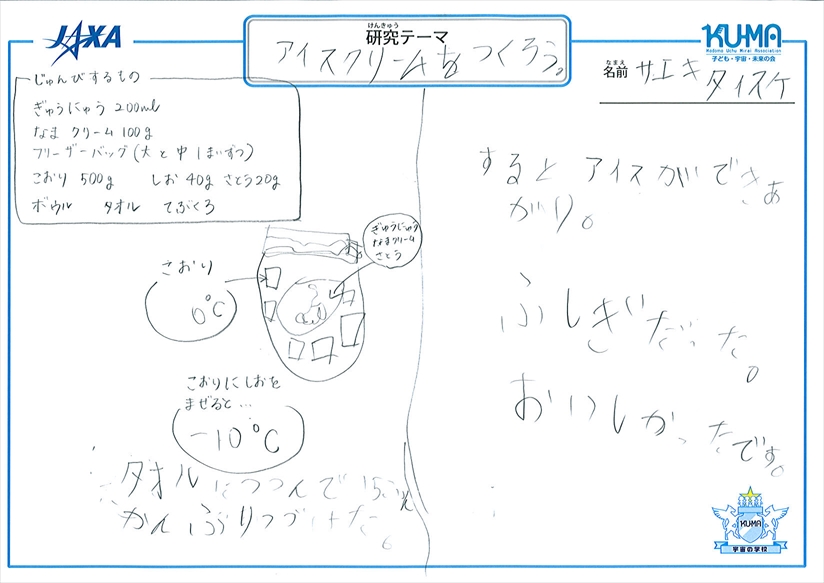 JAXA
けんきゅう
研究テーマ
アイスクリームをつくろう。
KUMA
Kodomo Uchu Mirai Association
子ども・宇宙・未来の会
なまえ
名前 サエキ
タイスケ
じゅんびするもの
ぎゅうにゅう 200ml
なまクリーム 100g
フリーザーバッグ(大と中1まいずつ)
こおり 500g しお 40g さとう20g
ボウル タオル てぶくろ
ぎゅうにゅう
なまクリーム
さとう
こおり
0℃
こおりにしおを
まぜると…
-10℃
タオルにつつんで15ふん
かんふりつづけた。
するとアイスができあ
がり。
ふしぎだった。
おいしかったです。
KUMA
宇宙の学校